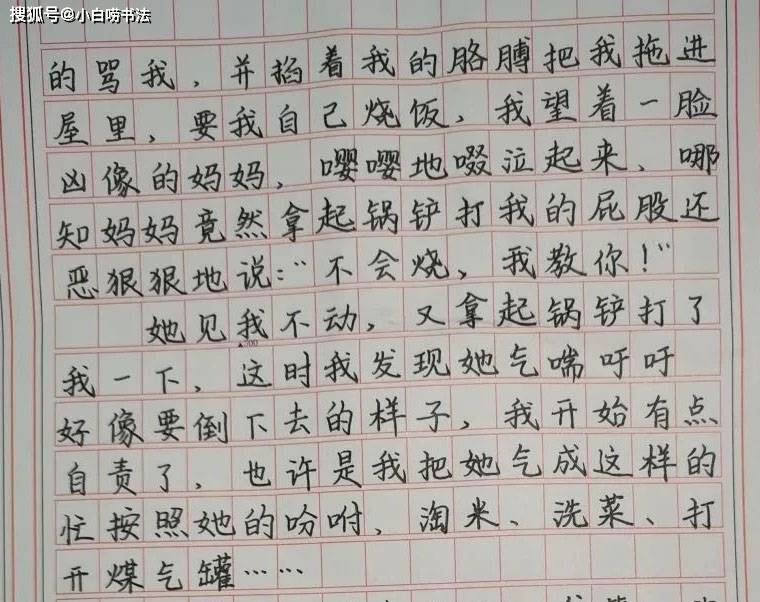 搜狐号@小白唠书法
的骂我,并掐着我的胳膊把我拖进
屋里,要我自己烧饭,我望着一脸
凶像的妈妈,嘤嘤地啜泣起来、哪
知妈妈竟然拿起锅铲打我的屁股还
恶狠狠地说:"不会烧,我教你!"
她见我不动,又拿起锅铲打了
300
我一下,这时我发现她气喘吁吁
好像要倒下去的样子,我开始有点
自责了,也许是我把她气成这样的
忙按照她的吩咐、淘米、洗菜、打
开煤气罐……